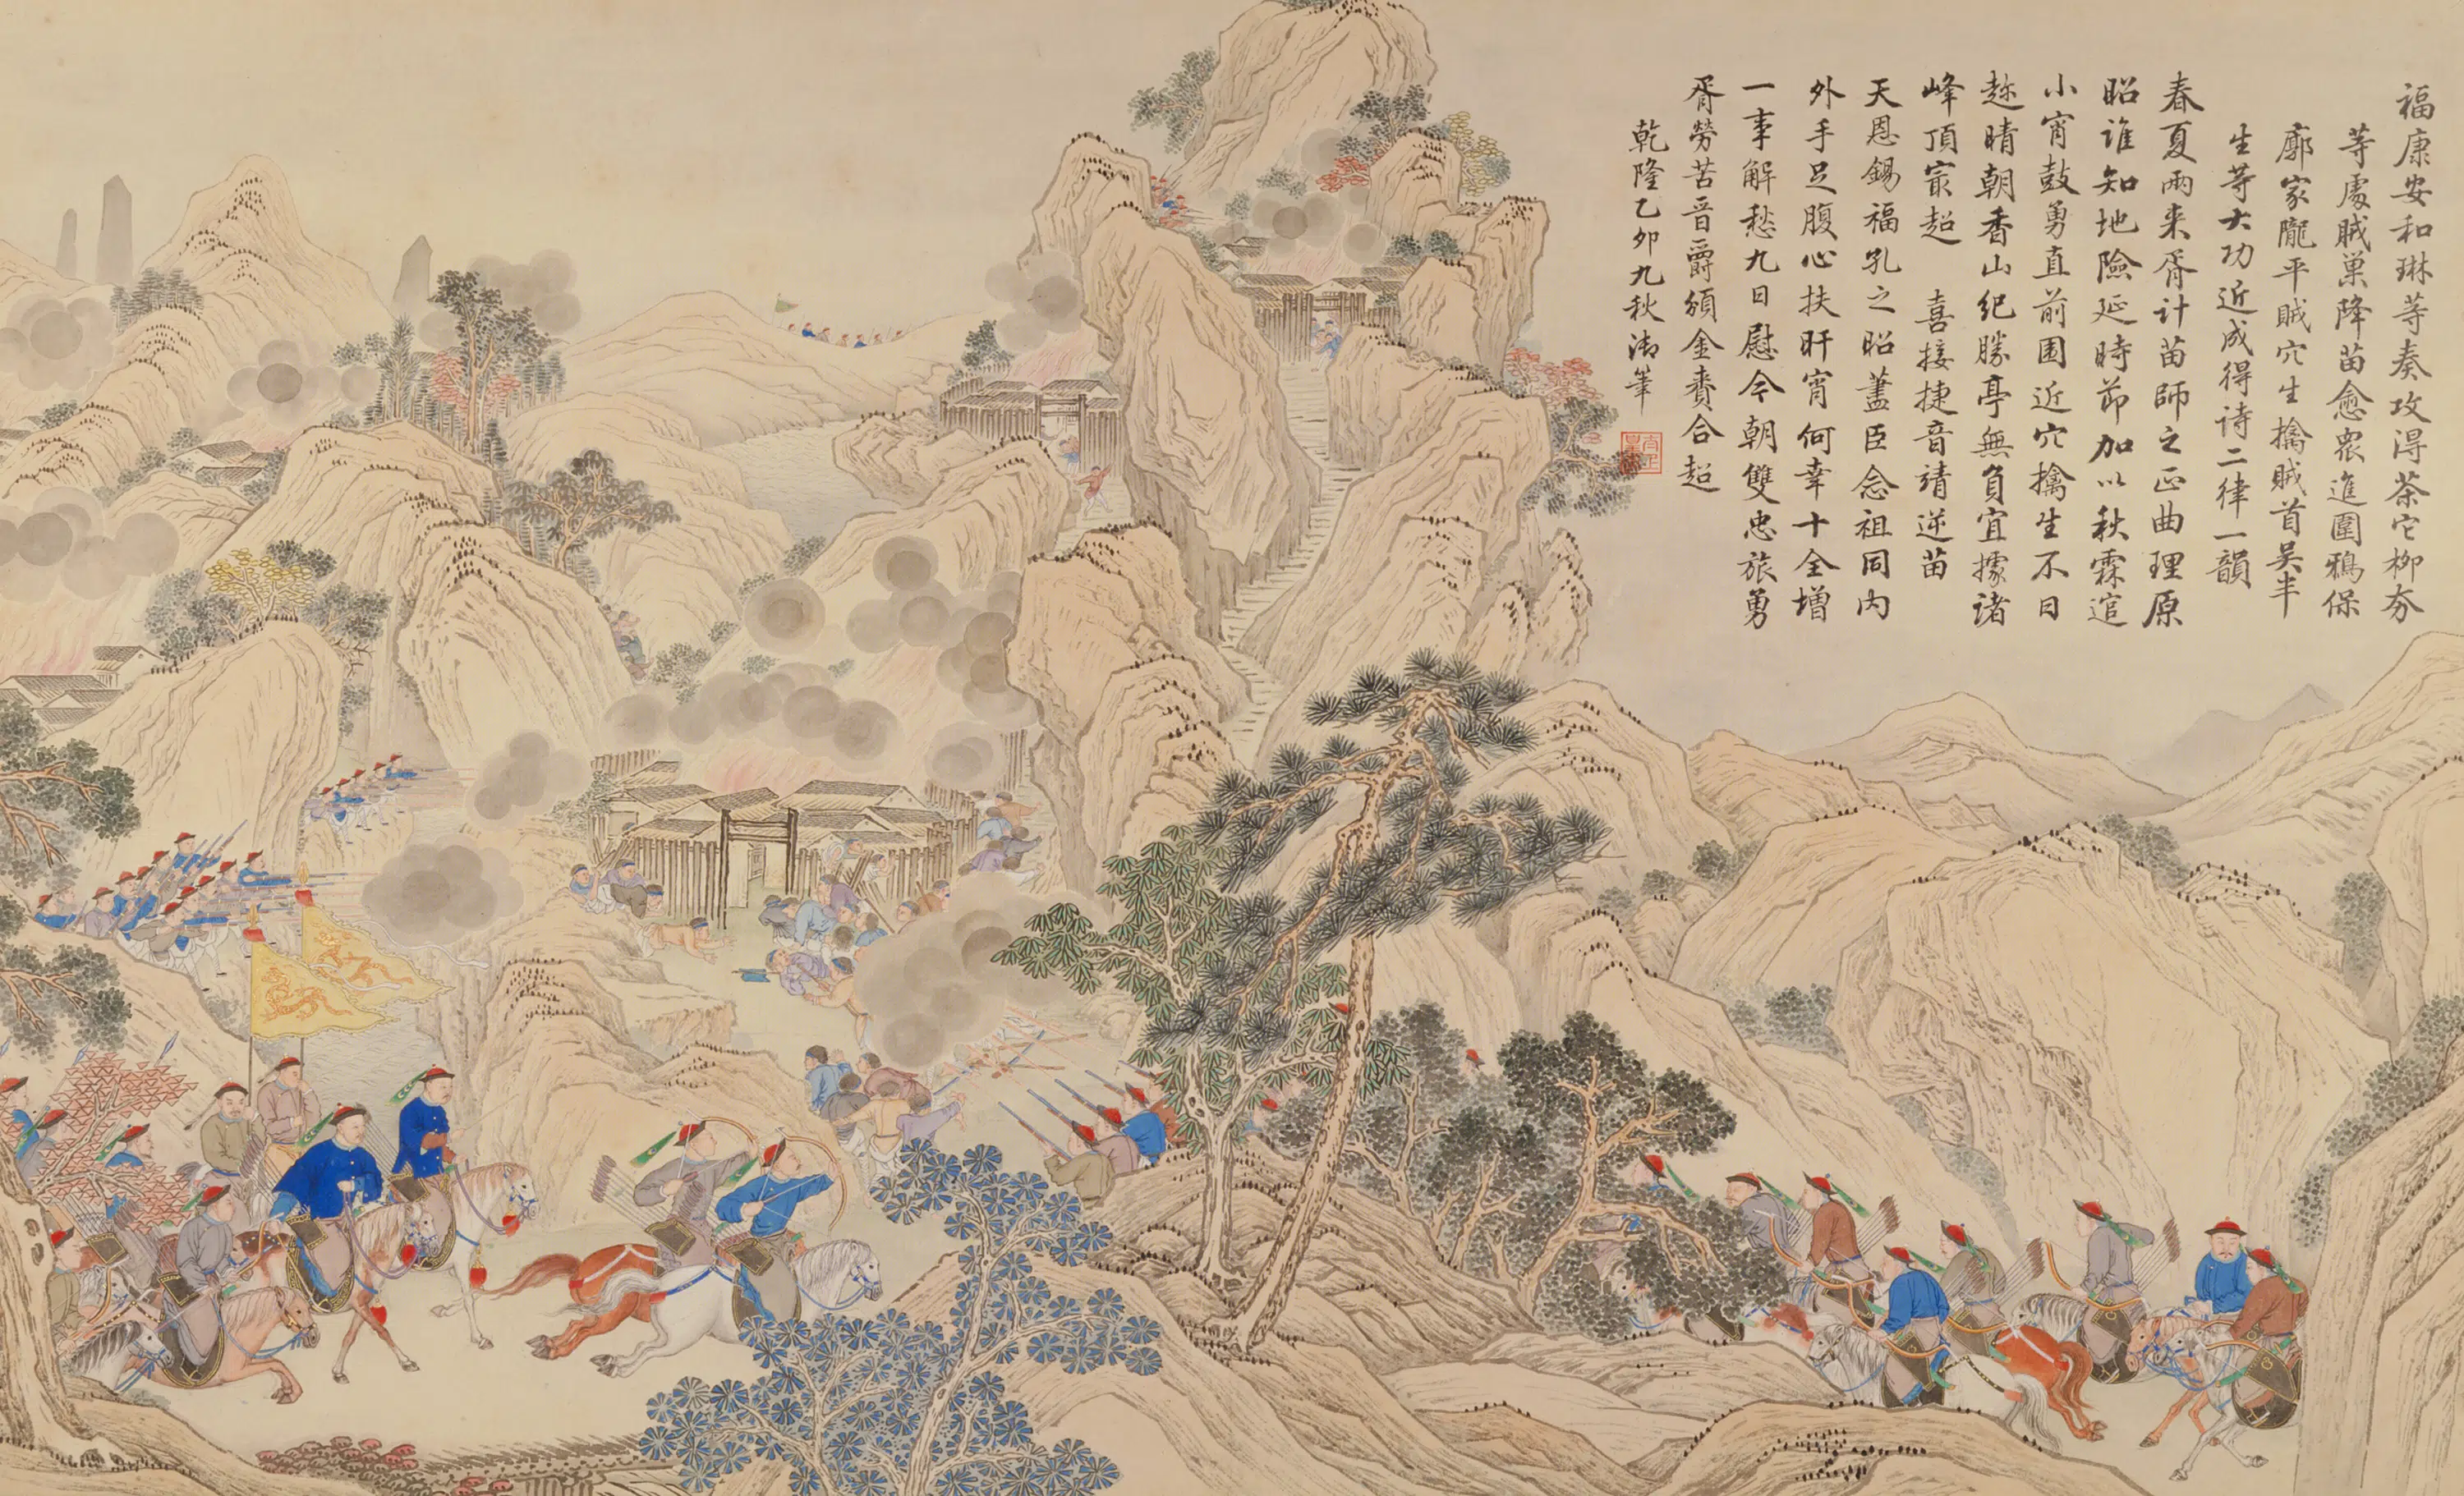 福康安和琳等奏攻得茶它柳夯
等處賊巢降苗愈眾進圍鴉保
廖家隴平賊穴生擒賊首吳半
生等大功近成得詩二律一韻
春夏兩來胥計苗師之正曲理原
昭誰知地險延時節加以秋霖逭
小宵鼓勇直前圍近穴擒生不日
趂晴朝香山紀勝亭無負宜據諸
峰頂冣超 喜接捷音靖逆苗
天恩錫福孔之昭藎臣念祖同內
外手足腹心扶旰宵何幸十全增
一事解愁九日慰今朝雙忠旅勇
胥勞苦晉爵頒金賚合超
乾隆乙卯九秋御筆